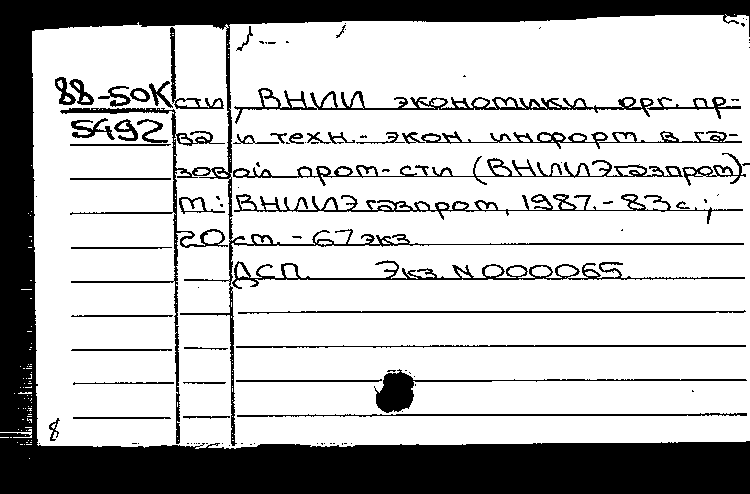 88-50К сти, ВНИИ экономики, орг. пр-
5492 ва и техн.- экон. информ. в га-
зовой пром-сти (ВНИИЭгазпром).-
М.: ВНИИЭгазпром, 1987.- 83 с.;
20 см. - 67 экз.
ДСП. Экз. N 000065.
8